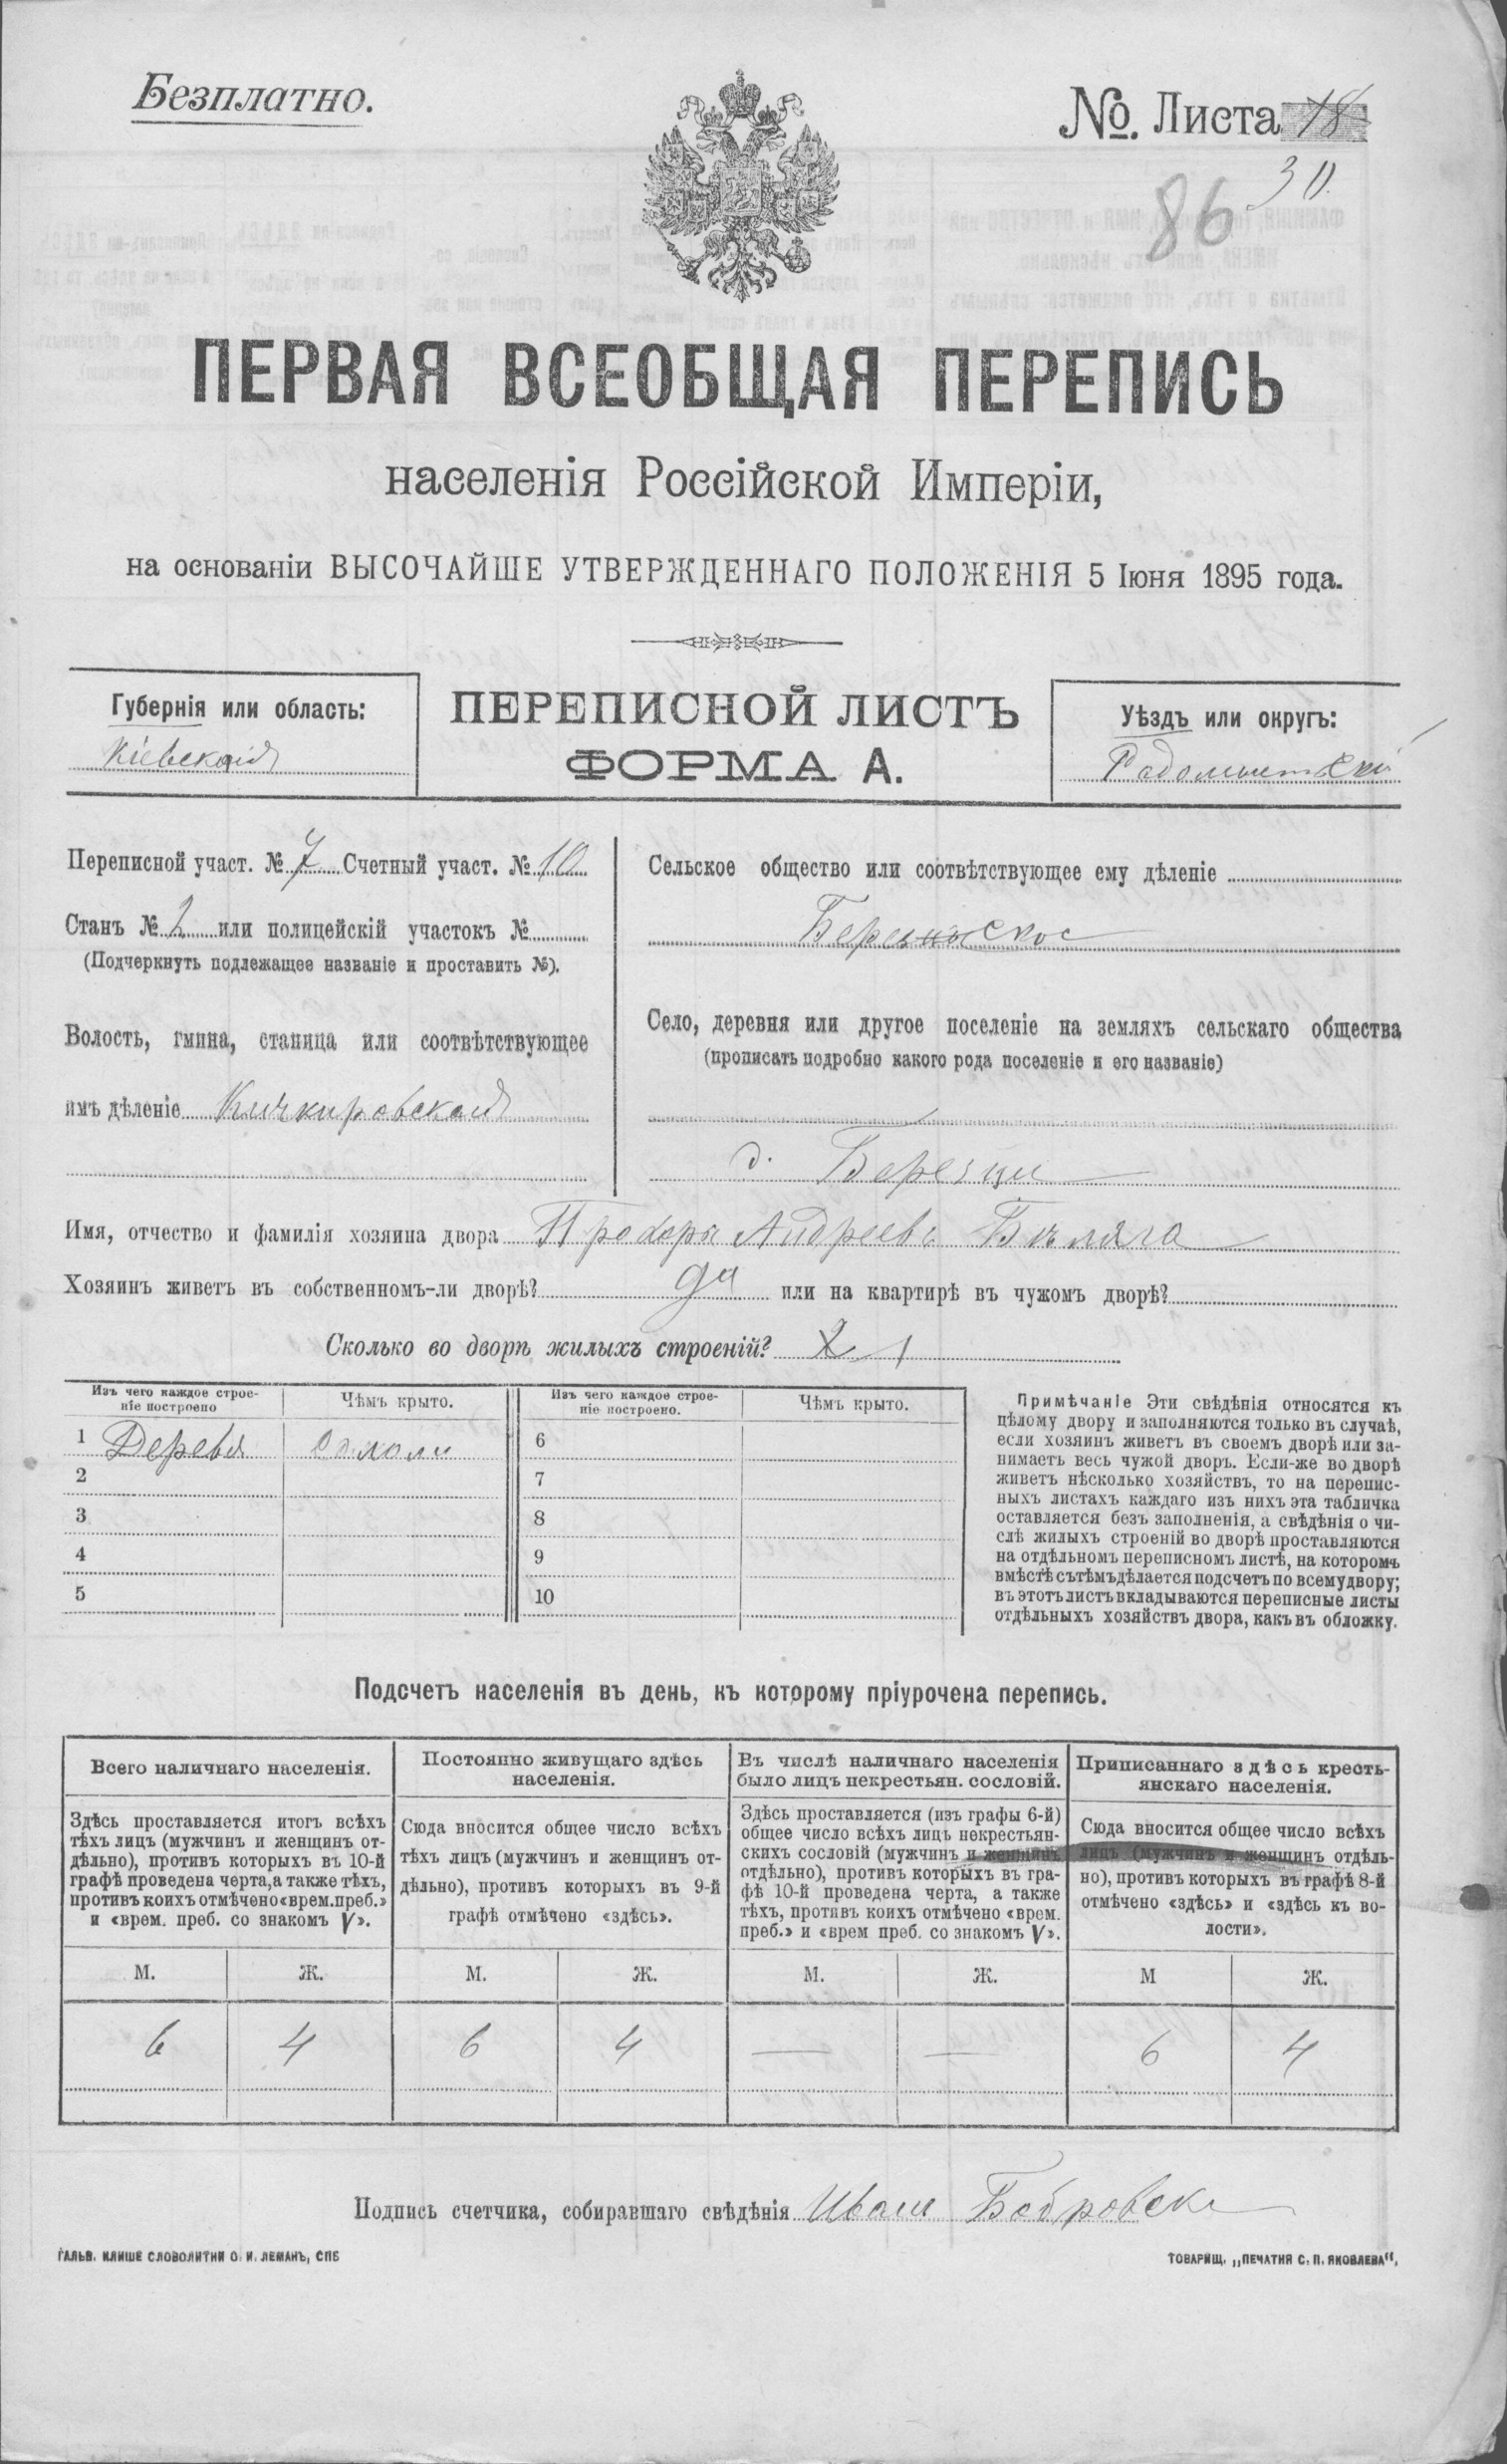 Безплатно.
№. Листа 18
30.
86
ПЕРВАЯ ВСЕОБЩАЯ ПЕРЕПИСЬ
населенія Россійской Имперіи,
на основаніи ВЫСОЧАЙШЕ УТВЕРЖДЕННАГО ПОЛОЖЕНІЯ 5 Іюня 1895 года.
Губернія или область:
Кіевская
ПЕРЕПИСНОЙ ЛИСТЪ
ФОРМА А.
Уѣздъ или округъ:
Переписной участ. № 7 Счетный участ. № 10
Станъ № 2 или полицейскій участокъ №
(Подчеркнуть подлежащее названіе и проставить №).
Волость, гмина, станица или соотвѣтствующее
имъ дѣленіе Кичкировская
Сельское общество или соотвѣтствующее ему дѣленіе
Село, деревня или другое поселеніе на земляхъ сельскаго общества
(прописать подробно какого рода поселеніе и его названіе)
д. Березци
Имя, отчество и фамилія хозяина двора Прохоръ Андреевъ
Хозяинъ живетъ въ собственномъ-ли дворѣ? да или на квартирѣ въ чужомъ дворѣ?
Сколько во дворѣ жилыхъ строеній? 2 1
Изъ чего каждое строе-
ніе построено
Чѣмъ крыто.
Изъ чего каждое строе-
ніе построено.
Чѣмъ крыто.
1 Дерева соломи 6
2 7
3 8
4 9
5 10
Примѣчаніе Эти свѣдѣнія относятся къ
цѣлому двору и заполняются только въ случаѣ,
если хозяинъ живетъ въ своемъ дворѣ или за-
нимаетъ весь чужой дворъ. Если-же во дворѣ
живетъ нѣсколько хозяйствъ, то на перепис-
ныхъ листахъ каждаго изъ нихъ эта табличка
оставляется безъ заполненія, а свѣдѣнія о чи-
слѣ жилыхъ строеній во дворѣ проставляются
на отдѣльномъ переписномъ листѣ, на которомъ
вмѣстѣ съ тѣмъ дѣлается подсчетъ по всему двору;
въ этотъ листъ вкладываются переписные листы
отдѣльныхъ хозяйствъ двора, какъ въ обложку.
Подсчетъ населенія въ день, къ которому пріурочена перепись.
Всего наличнаго населенія.
Здѣсь проставляется итогъ всѣхъ
тѣхъ лицъ (мужчинъ и женщинъ от-
дѣльно), противъ которыхъ въ 10-й
графѣ проведена черта, а также тѣхъ,
противъ коихъ отмѣчено «врем. преб.»
и «врем. преб. со знакомъ V».
Постоянно живущаго здѣсь
населенія.
Сюда вносится общее число всѣхъ
тѣхъ лицъ (мужчинъ и женщинъ от-
дѣльно), противъ которыхъ въ 9-й
графѣ отмѣчено «здѣсь».
Въ числѣ наличнаго населенія
было лицъ некрестьян. сословій.
Здѣсь проставляется (изъ графы 6-й)
общее число всѣхъ лицъ некрестьян-
скихъ сословій (мужчинъ и женщинъ
отдѣльно), противъ которыхъ въ гра-
фѣ 10-й проведена черта, а также
тѣхъ, противъ коихъ отмѣчено «врем.
преб.» и «врем преб. со знакомъ V».
Приписаннаго здѣсь кресть-
янскаго населенія.
Сюда вносится общее число всѣхъ
лицъ (мужчинъ и женщинъ отдѣль-
но), противъ которыхъ въ графѣ 8-й
отмѣчено «здѣсь» и «здѣсь къ во-
лости».
М. Ж. М. Ж. М. Ж. М Ж.
6 4 6 4 — — 6 4
Подпись счетчика, собиравшаго свѣдѣнія Иван Бобровски
ГАЛЬВ. КЛИШЕ СЛОВОЛИТНИ О. И. ЛЕМАНЪ, СПБ
ТОВАРИЩ. „ПЕЧАТНЯ С. П. ЯКОВЛЕВА“,